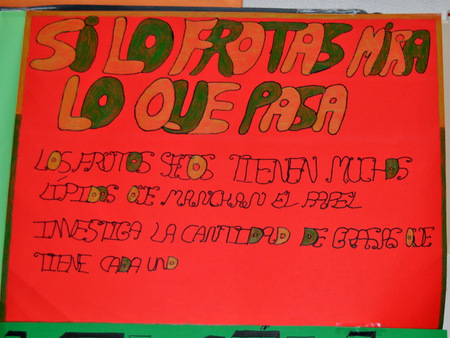 SI LO FROTAS MIRA
LO QUE PASA
LOS FRUTOS SECOS TIENEN MUCHOS
LÍPIDOS QUE MANCHAN EL PAPEL
INVESTIGA LA CANTIDAD DE GRASAS QUE
TIENE CADA UNO